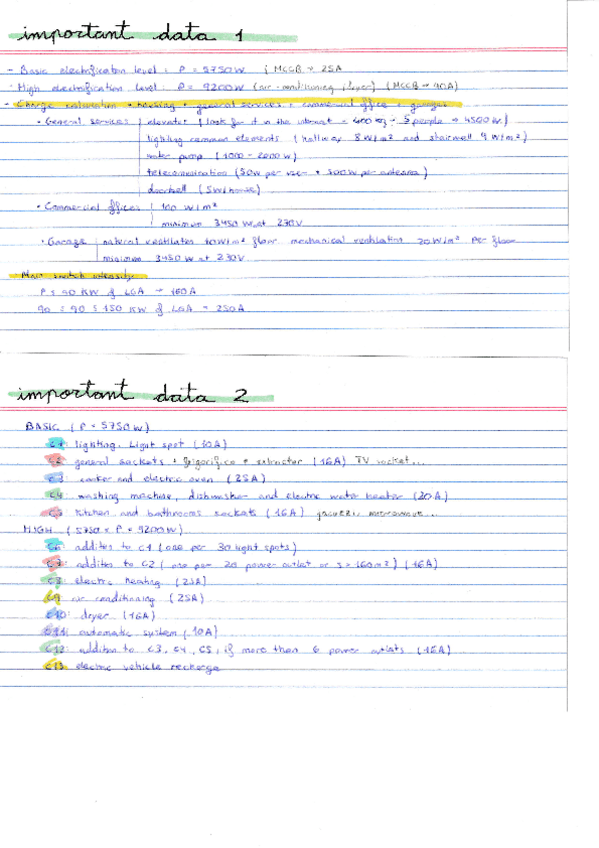 important data 1
- Basic electrification level: P = 5750W (MCCB → 25A
· High electrification level: P = 9200W (air-conditioning, dryer) (MCCB → 40A)
- Charge calculation = housing + general services + commercial office + garages
· General services elevator (look for it in the internet - 400 kg - 5 people → 4500W)
lighting common elements (hallway 8W/m² and stairwell 4W/m²)
water pump (1000 - 2000W)
telecommunication (50W per user + 500W per antenna)
doorbell (5W/house)
· Commercial offices 100 W/m²
minimum 3450W at 230V
· Garage natural ventilation 10W/m² floor mechanical ventilation 20W/m² per floor
minimum 3450W at 230V
- Main switch intensity:
P ≤ 90 KW of LGA → 160A
90 ≤ 150 KW of LGA → 250A
important data 2
BASIC (P = 5750W)
C1: lighting. Light spot (10A)
C2: general sockets + frigorifico + extractor (16A) TV socket...
C3: cooker and electric oven (25A)
C4: washing machine, dishwasher and electric water heater (20A)
C5: kitchen and bathrooms sockets (16A) jacuzzi, microwave...
HIGH (5750 < P < 9200W)
C6: addition to C1 (one per 30 light spots)
C7: addition to C2 (one per 20 power outlet or s > 160m²) (16A)
C8: electric heating (25A)
C9: air conditioning (25A)
C10: dryer (16A)
C11: automatic system (10A)
C12: addition to C3, C4, C5, if more than 6 power outlets (16A)
C13: electric vehicle recharge